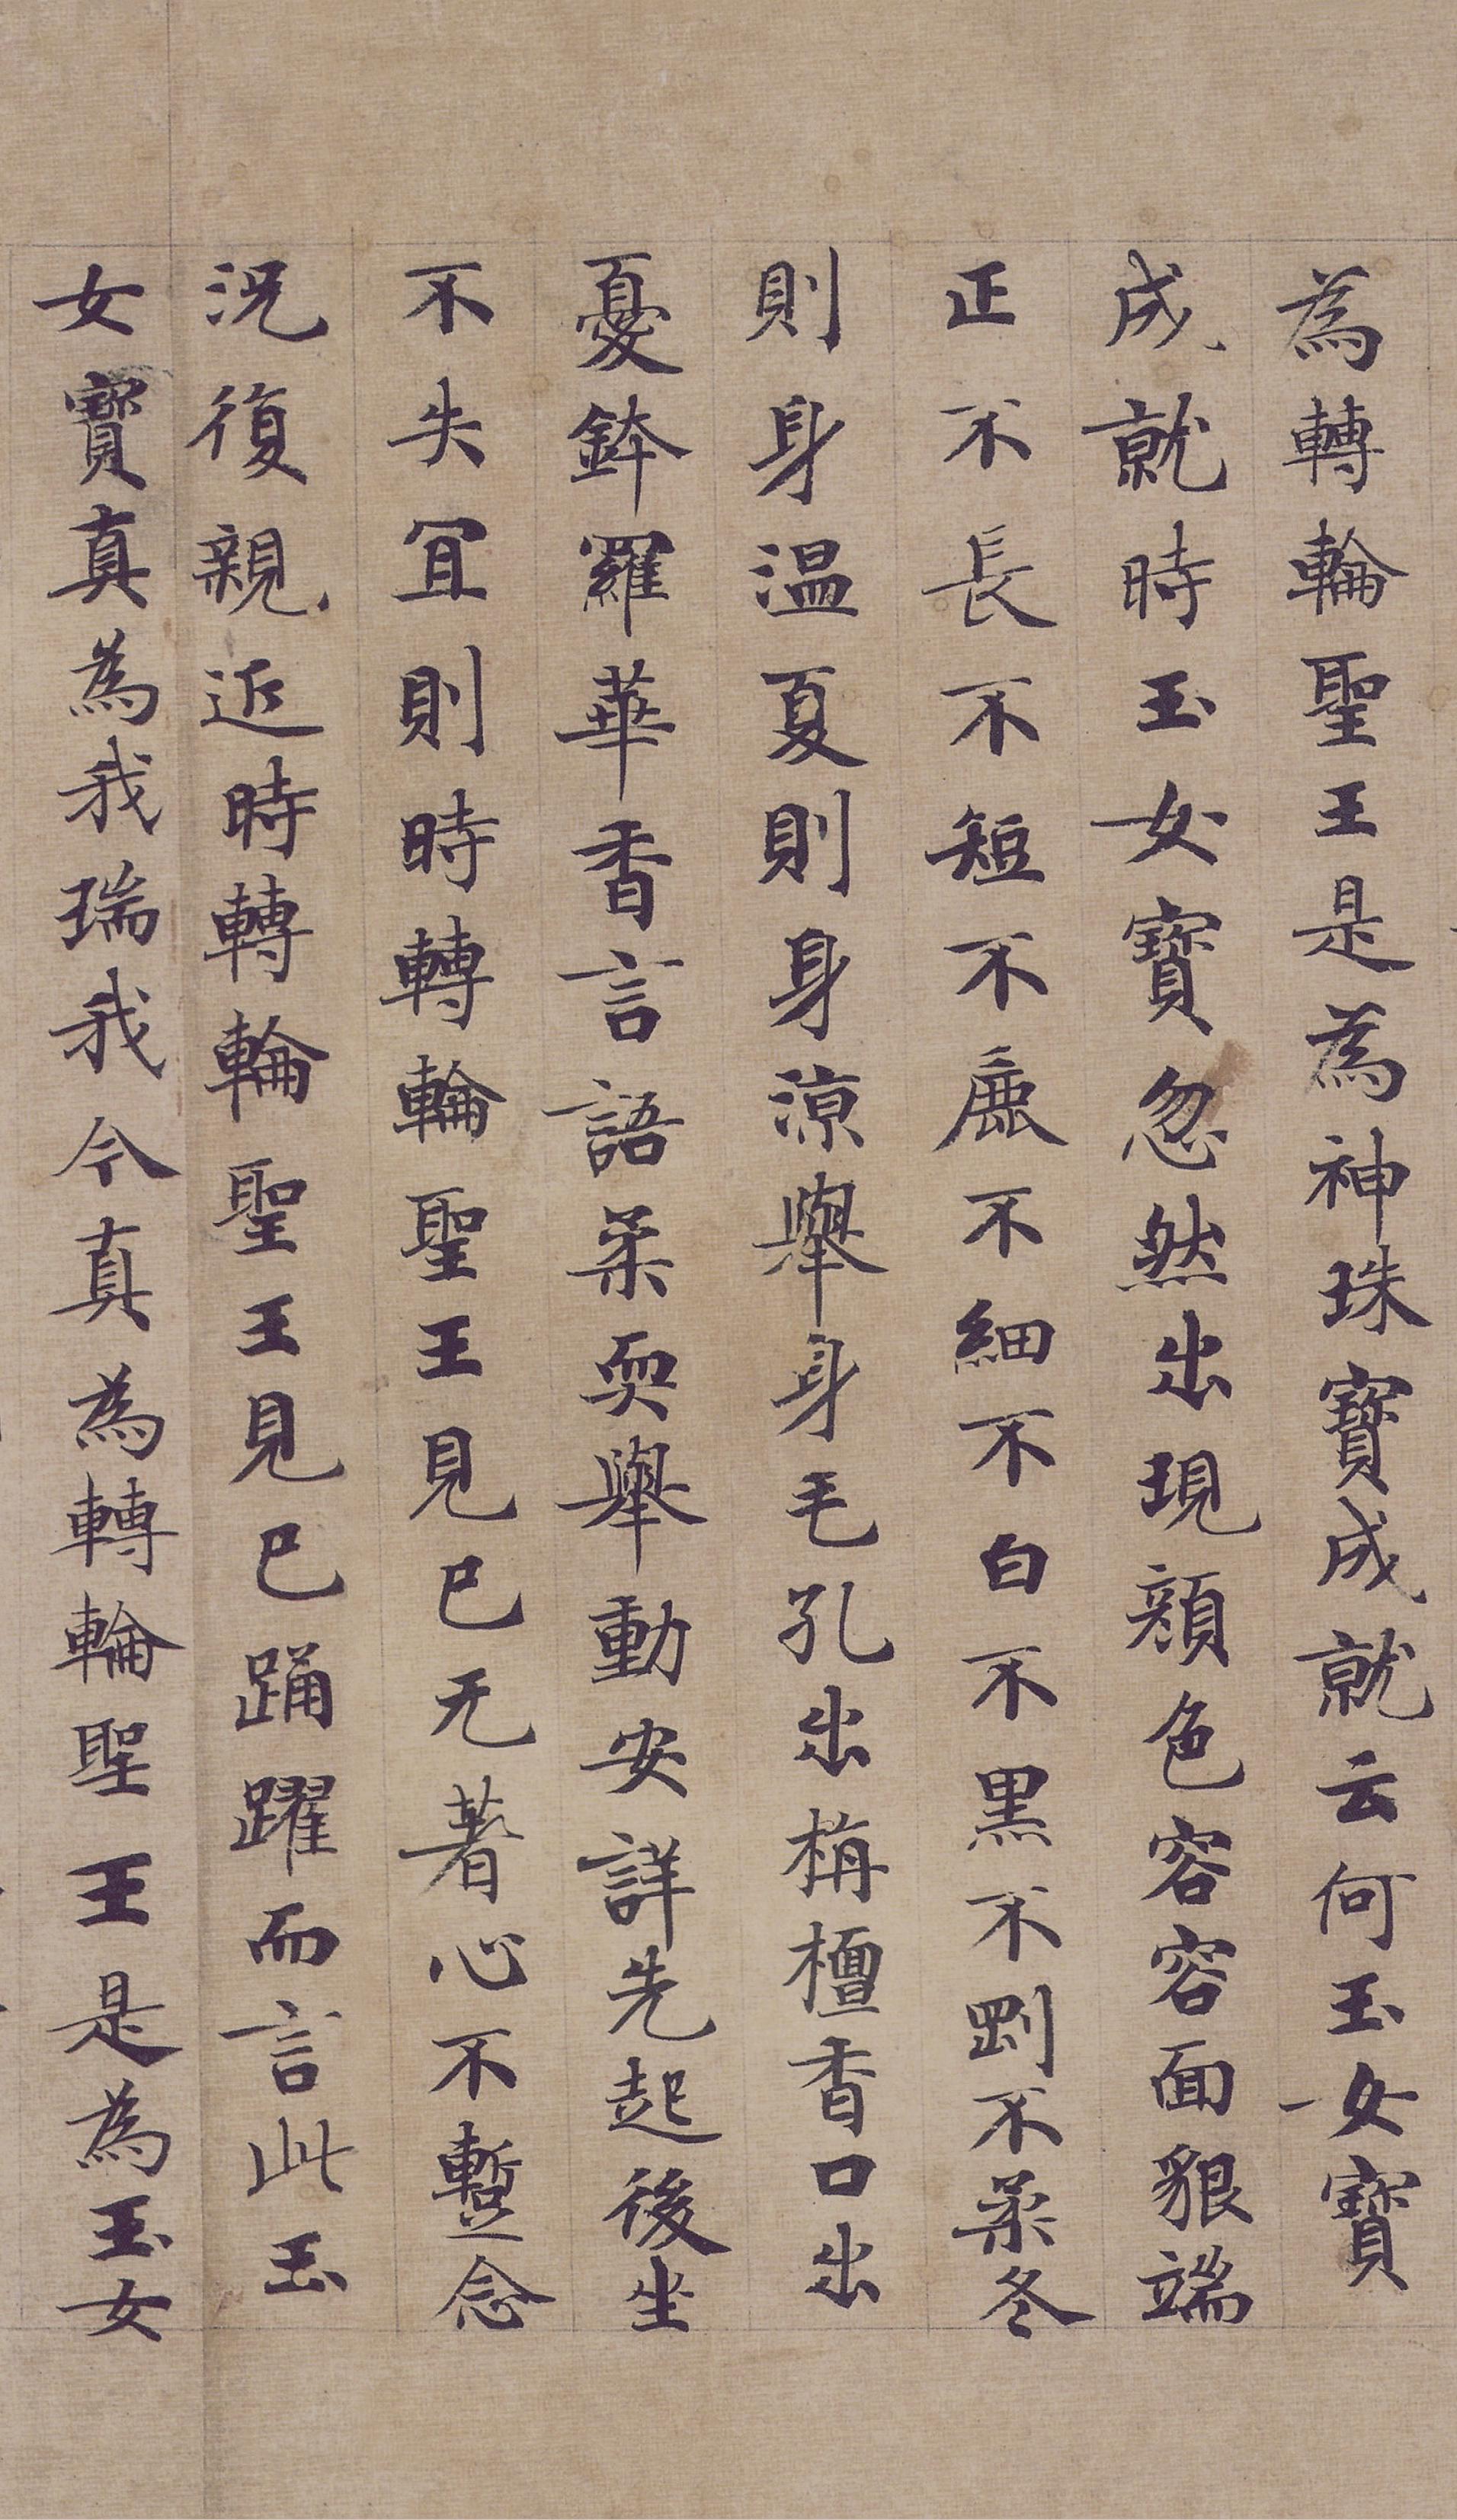 為轉輪聖王是為神珠寶成就云何玉女寶
成就時玉女寶忽然出現顏色容容面貌端
正不長不短不麁不細不白不黑不剛不柔冬
則身溫夏則身涼舉身毛孔出栴檀香口出
憂鉢羅華香言語柔耎舉動安詳先起後坐
不失宜則時轉輪聖王見已无著心不蹔念
況復親近時轉輪聖王見已踊躍而言此玉
女寶真為我瑞我今真為轉輪聖王是為玉女